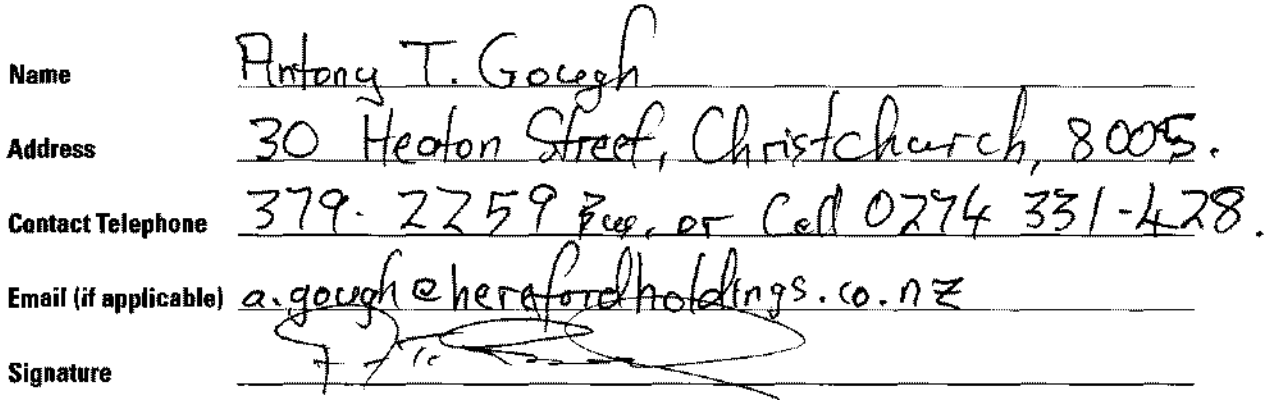 Name Antony T. Gough
Address 30 Heaton Street, Christchurch, 8005.
Contact Telephone 379-2259 Bus. or Cell 0274 331-428.
Email (if applicable) a.gough@herefordholdings.co.nz
Signature